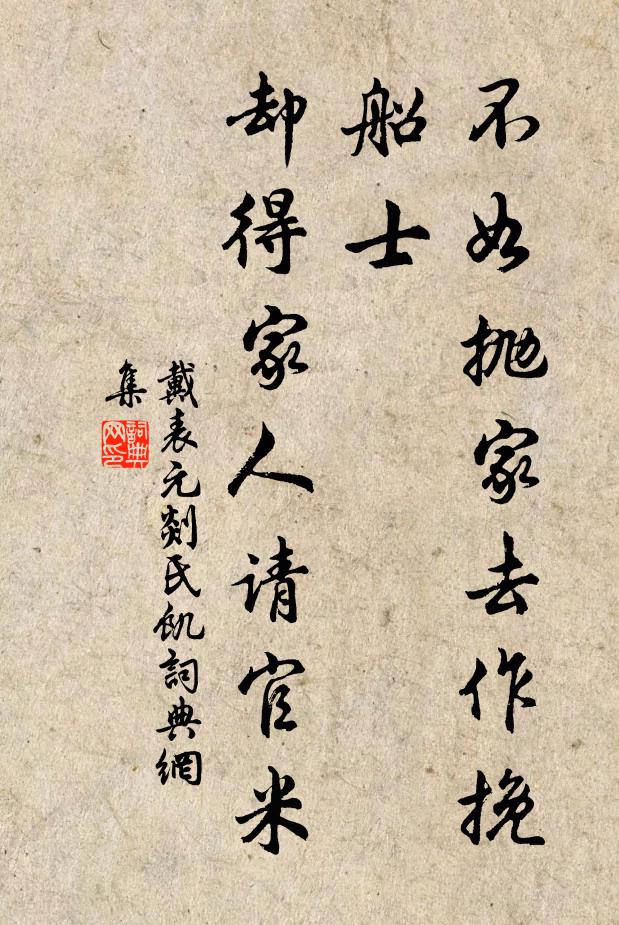 不如抛家去作挽
船士
却得家人请官米
戴表元剡氏飢詞典網
集
詞典
网印